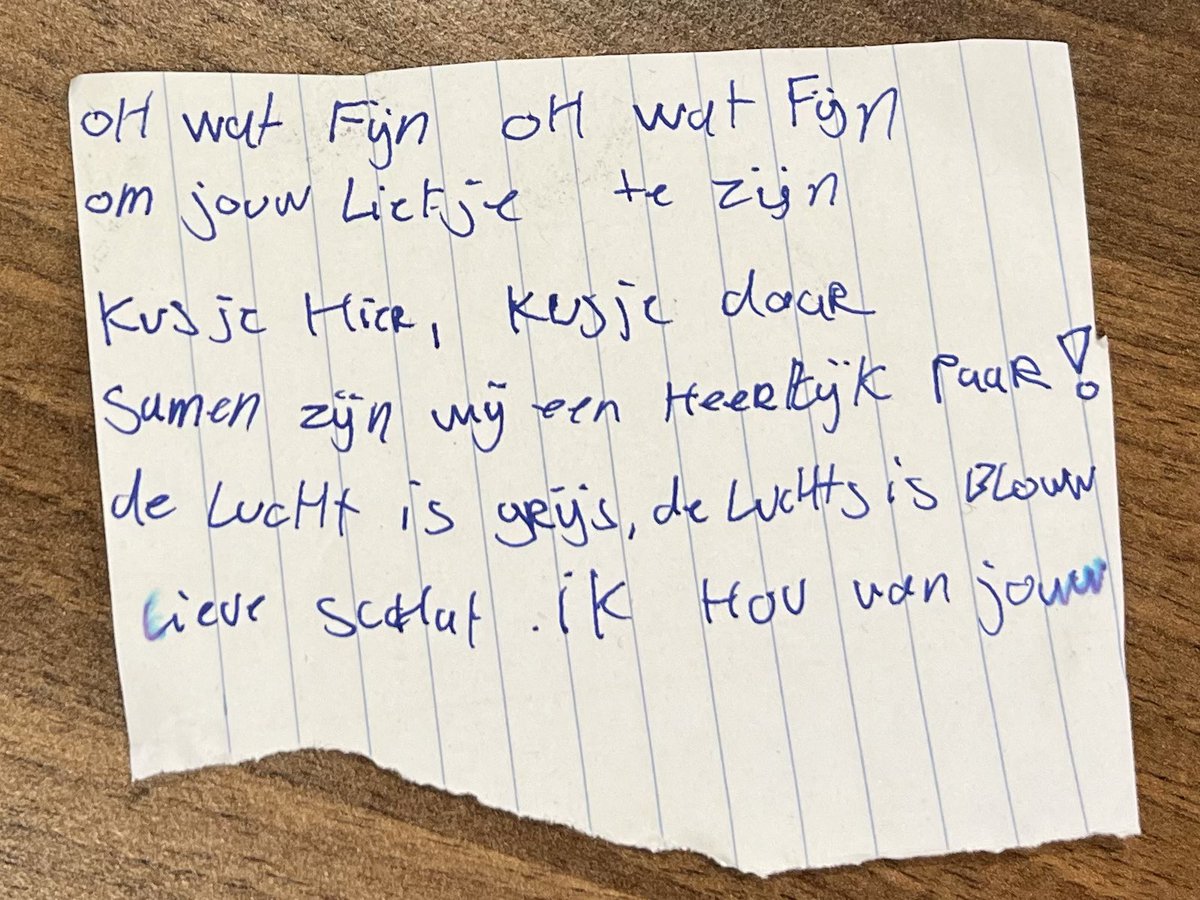 oH wat Fijn oH wat Fijn
om jouw Liefje te zijn
Kusje Hier, Kusje daar
Samen zijn wij een Heerlijk Paar!
de Lucht is grijs, de Luchts is Blouw
Lieve scHat. ik Hou van jouw